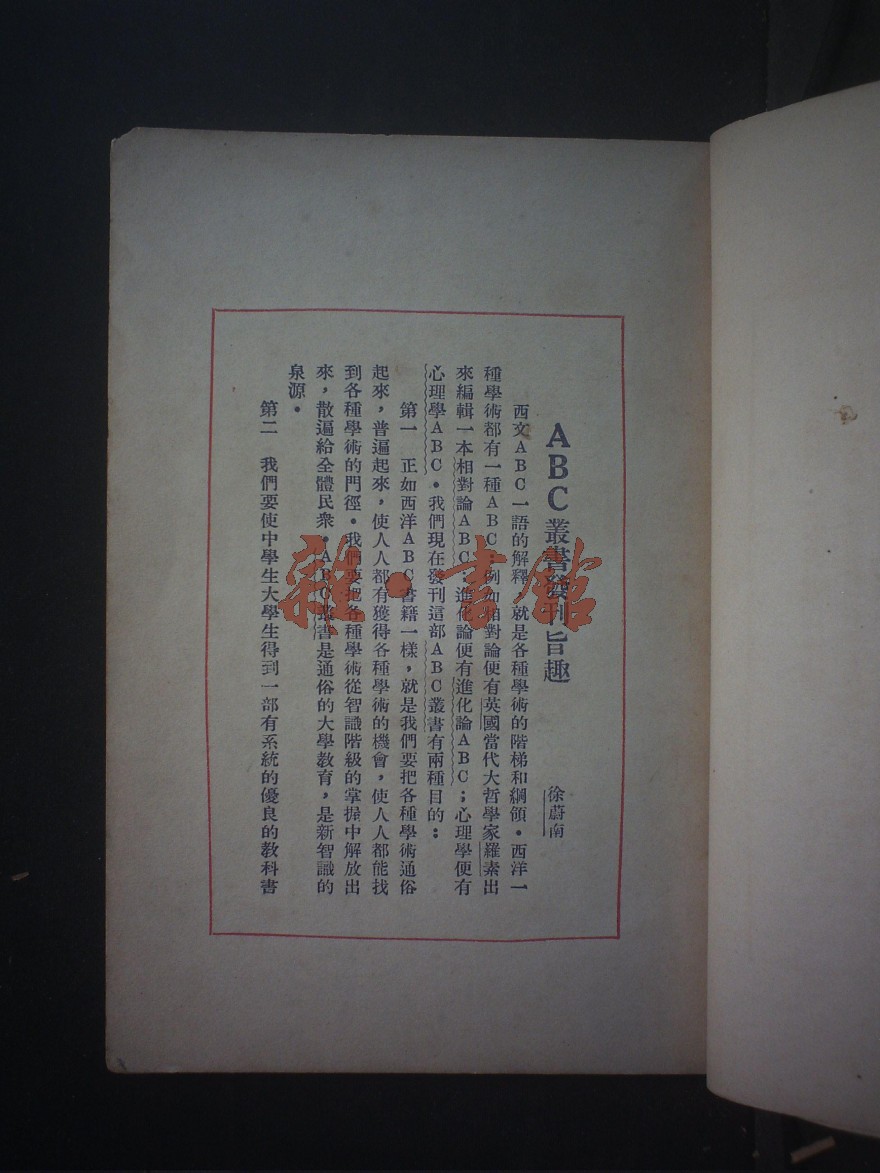 ABC叢書發刊旨趣
徐蔚南
西文ABC一語的解釋,就是各種學術的階梯和綱領。西洋一
種學術都有一種ABC;例如相對論便有英國當代大哲學家羅素出
來編輯一本相對論ABC;進化論便有進化論ABC;心理學便有
心理學ABC。我們現在發刊這部ABC叢書有兩種目的:
第一 正如西洋ABC書籍一樣,就是我們要把各種學術通俗
起來,普遍起來,使人人都有獲得各種學術的機會,使人人都能找
到各種學術的門徑。我們要把各種學術從智識階級的掌握中解放出
來,散遍給全體民衆。ABC叢書是通俗的大學教育,是新智識的
泉源。
第二 我們要使中學生大學生得到一部有系統的優良的教科書
雜·書館